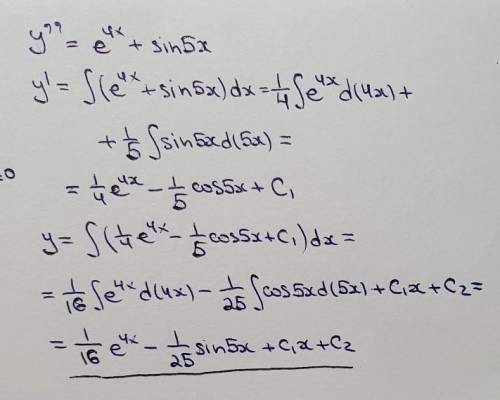 y'' = e^{4x} + sin5x
y' = ∫(e^{4x} + sin5x)dx = 1/4 ∫e^{4x}d(4x) +
+ 1/5 ∫sin5xd(5x) =
= 1/4 e^{4x} - 1/5 cos5x + C₁
y = ∫(1/4 e^{4x} - 1/5 cos5x + C₁)dx =
= 1/16 ∫e^{4x}d(4x) - 1/25 ∫cos5xd(5x) + C₁x + C₂ =
= 1/16 e^{4x} - 1/25 sin5x + C₁x + C₂